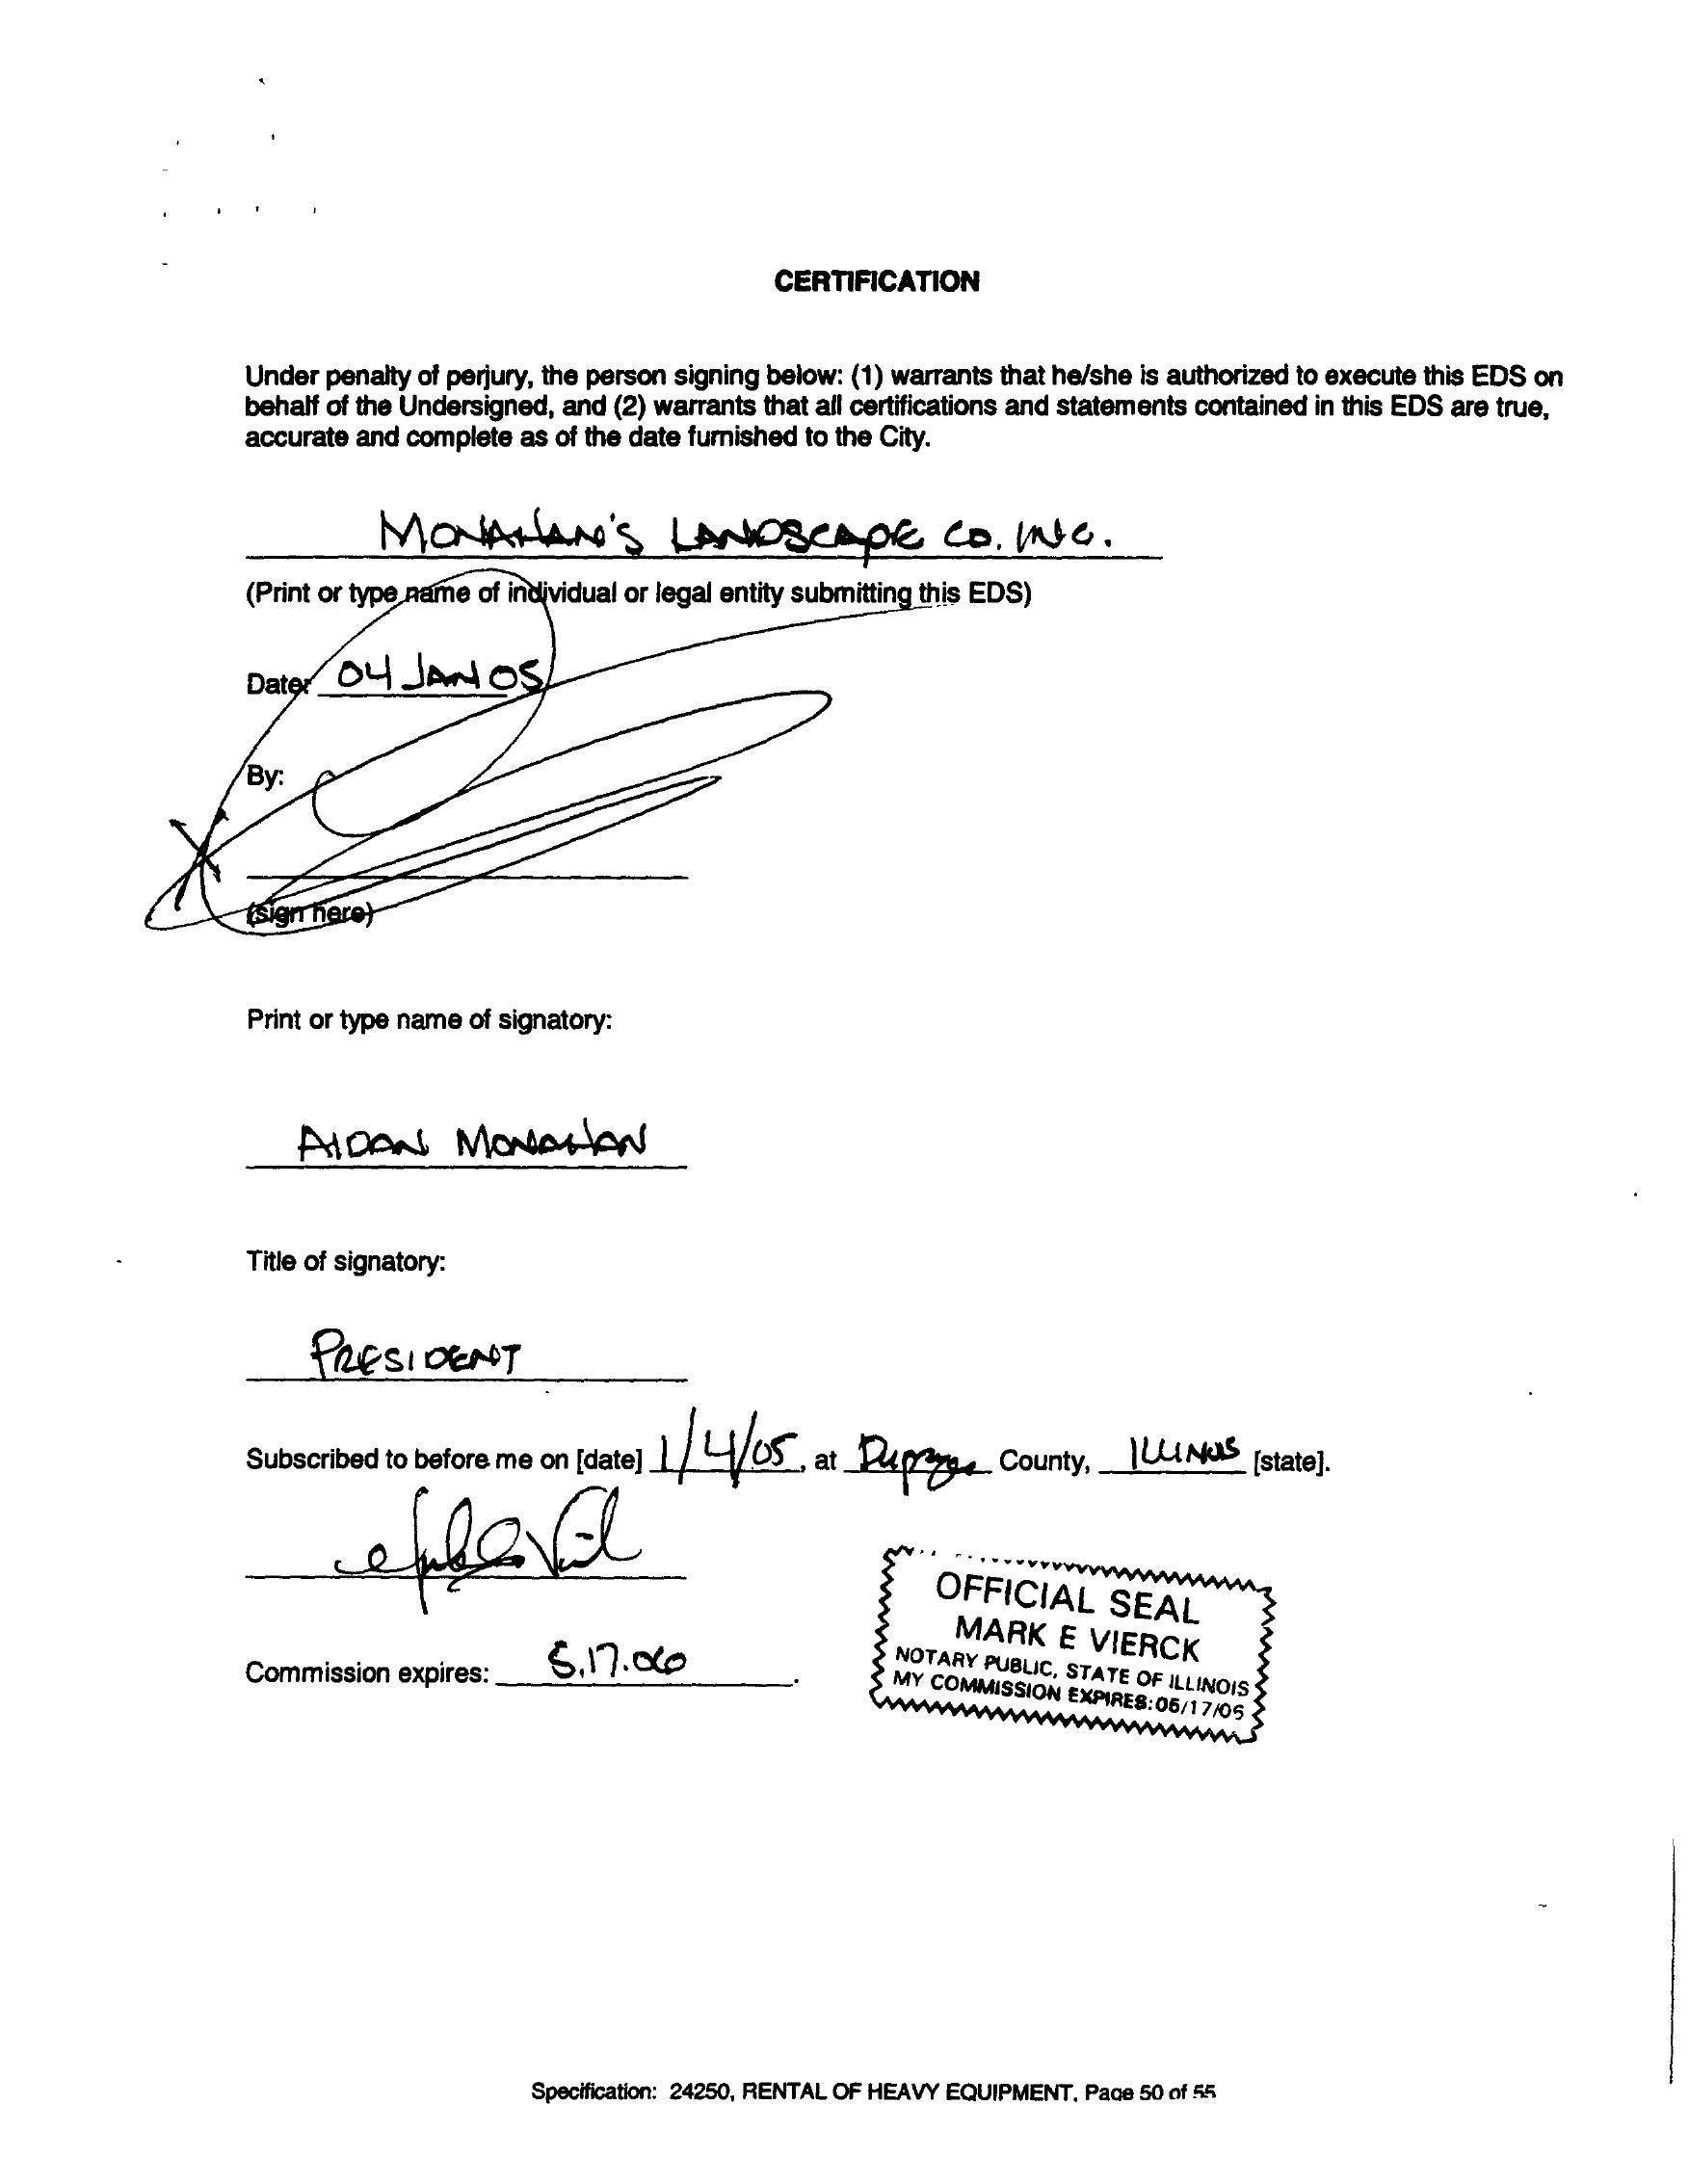 CERTIFICATION
Under penalty of perjury, the person signing below: (1) warrants that he/she is authorized to execute this EDS on
behalf of the Undersigned, and (2) warrants that all certifications and statements contained in this EDS are true,
accurate and complete as of the date furnished to the City.
MONAHAN'S LANDSCAPE CO. INC.
(Print or type name of individual or legal entity submitting this EDS)
Date: 04 JAN 05
By:
X
(sign here)
Print or type name of signatory:
AIDAN MONAHAN
Title of signatory:
PRESIDENT
Subscribed to before me on [date] 1/4/05, at Dupage County, ILLINOIS [state].
OFFICIAL SEAL
MARK E VIERCK
NOTARY PUBLIC, STATE OF ILLINOIS
MY COMMISSION EXPIRES:05/17/06
Commission expires: 5.17.06.
Specification: 24250, RENTAL OF HEAVY EQUIPMENT, Page 50 of 55